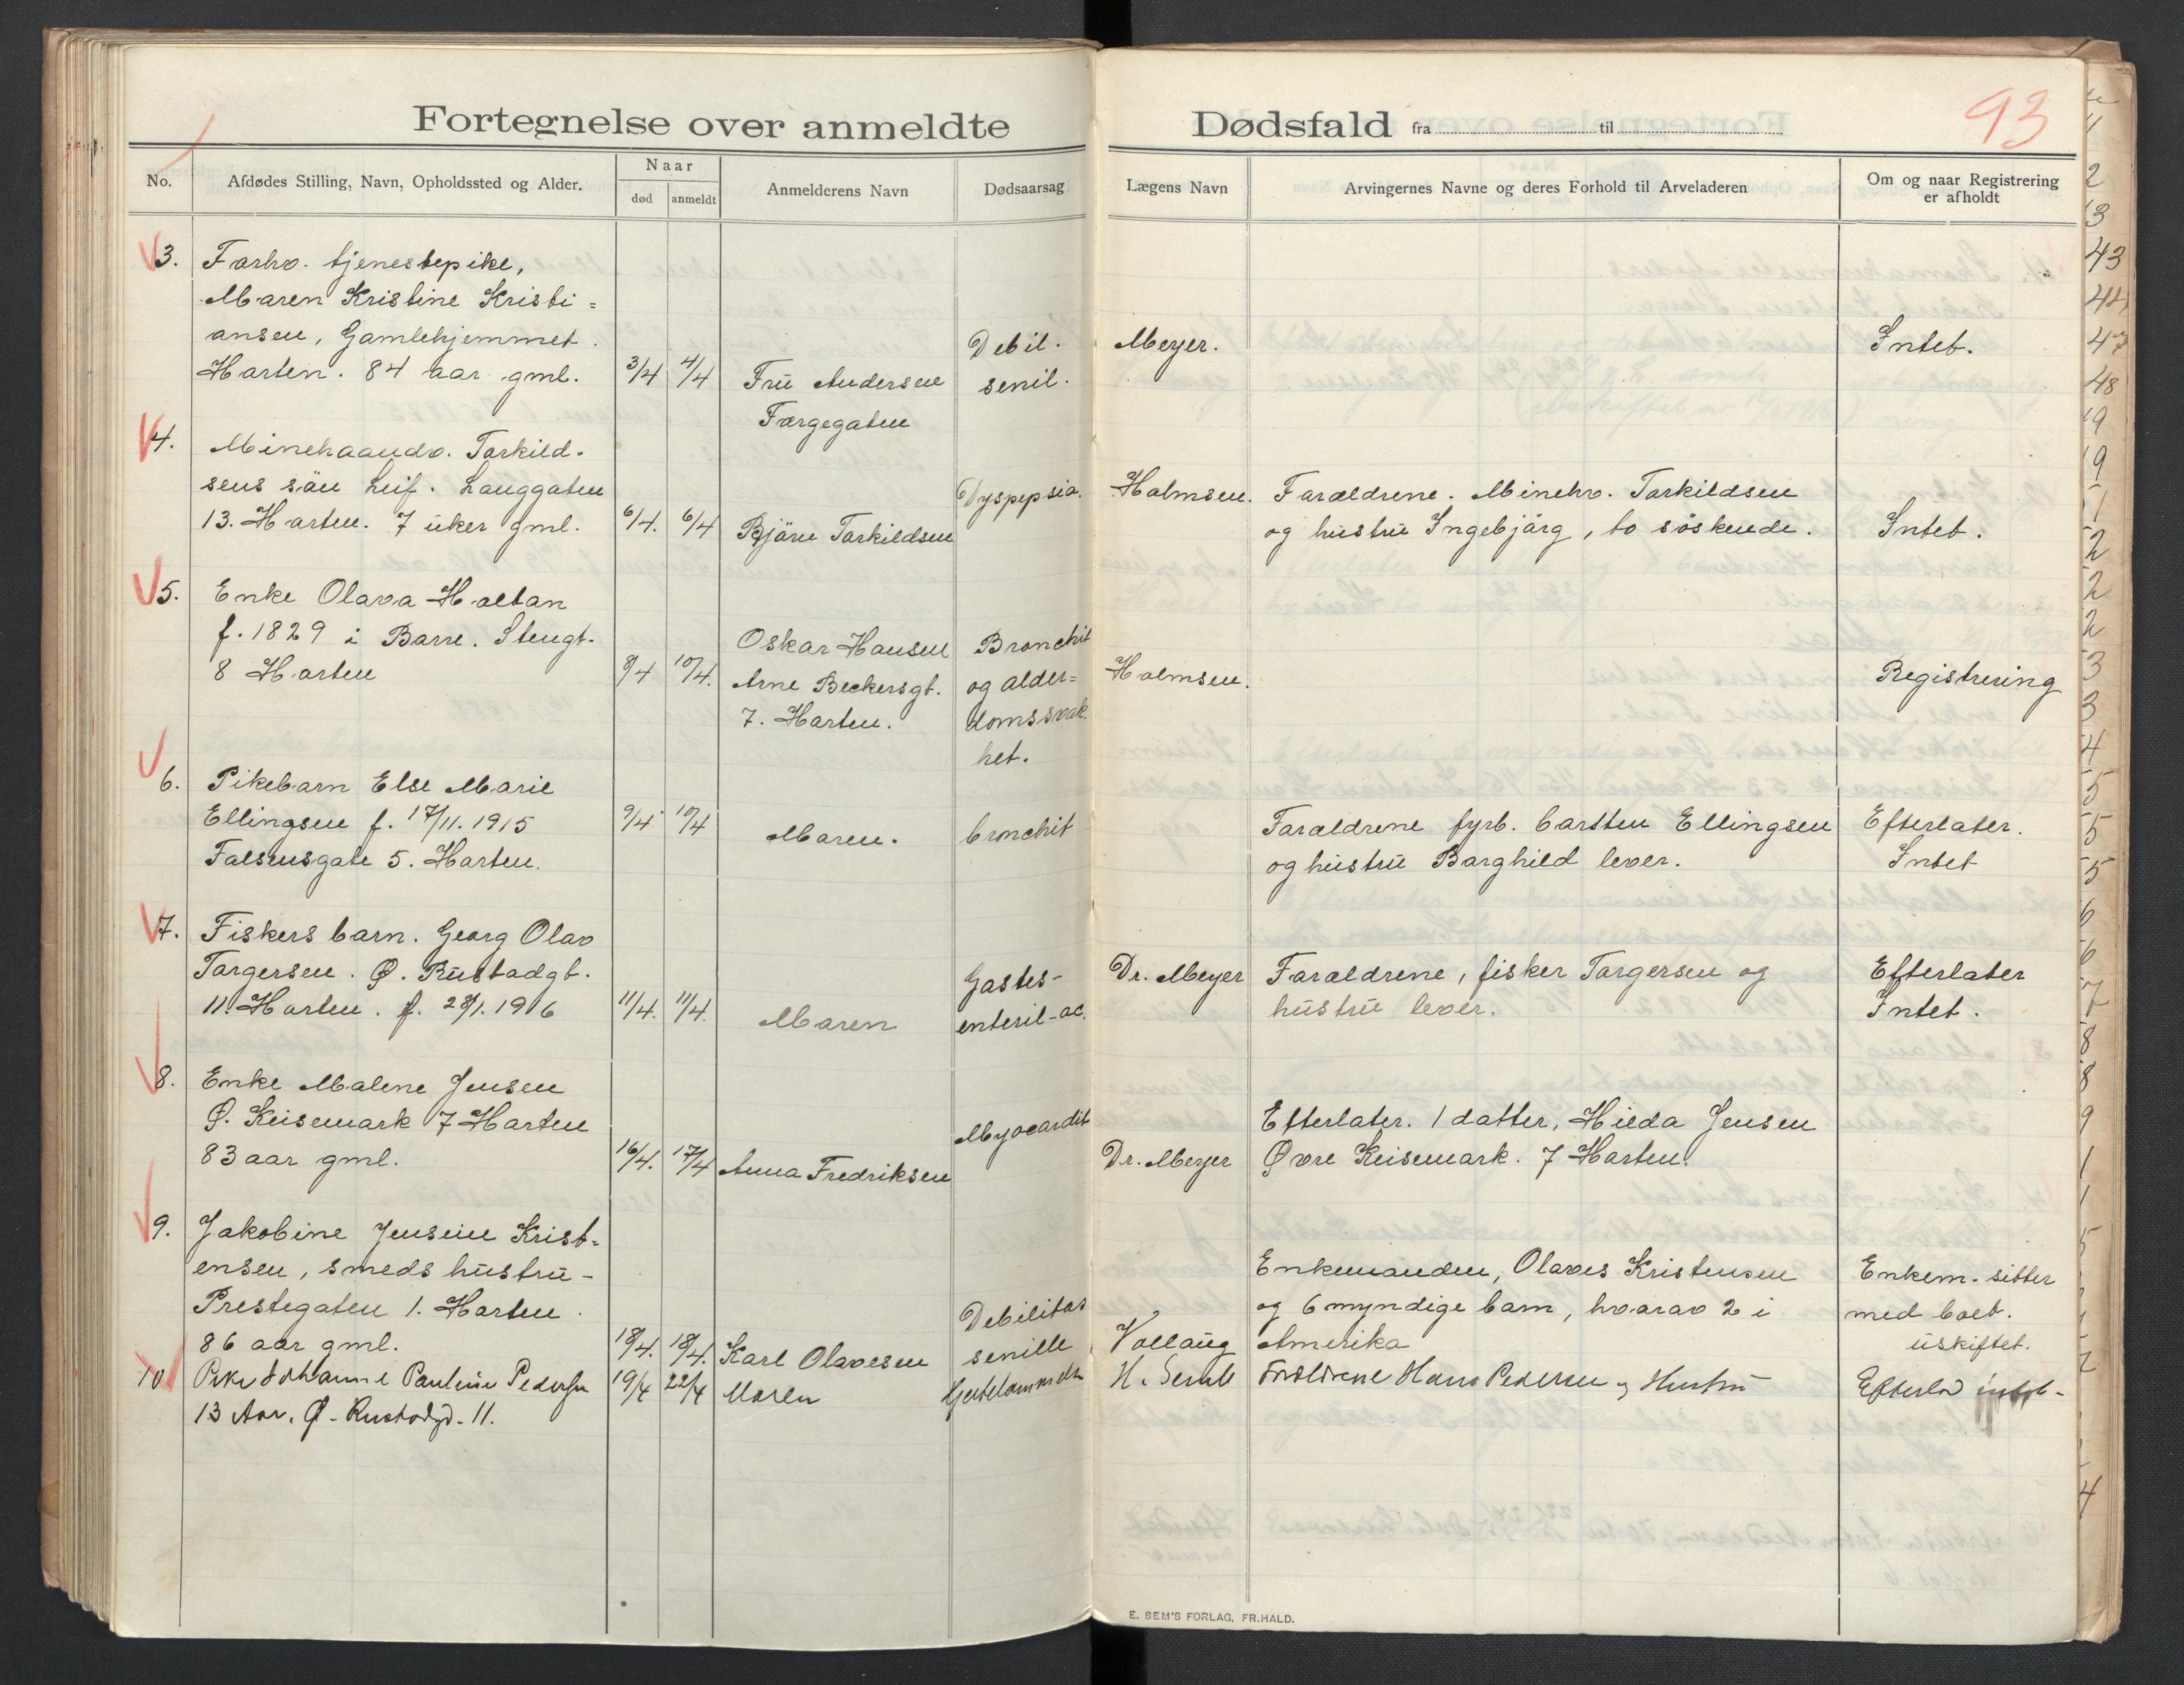 Fortegnelse over anmeldte Dødsfald fra til
93
No.
Afdødes Stilling, Navn, Opholdssted og Alder.
Naar
død
anmeldt
Anmelderens Navn
Dødsaarsag
Lægens Navn
Arvingernes Navne og deres Forhold til Arveladeren
Om og naar Registrering
er afholdt
3. Forhv. tjenestepike,
Maren Kristine Kristi=
ansen, Gamlehjemmet.
Horten. 84 aar gml.
3/4 4/4
Frü Andersen
Færgegaten
Debil.
senil.
Meyer.
Intet.
4. Minehaandv. Torkild-
sens sön Leif. Langgaten
13. Horten. 7 üker gml.
6/4. 6/4
Bjärne Torkildsen
Dyspepsia.
Holmsen.
Foraeldrene. Minehv. Torkildsen
og hüstrü Ingebjörg, to söskende.
Intet.
5. Enke Olava Holtan
f. 1829 i Borre. Stengt.
8 Horten
8/4 10/4.
Oskar Hansen
Arne Beckersgt.
7. Horten.
Bronchit
og alder=
domssvak
het.
Holmsen.
Registrering
6. Pikebarn Else Marie
Ellingsen f. 17/11. 1915
Falsensgate 5. Horten.
9/4 10/4
Moren.
bronchit
Foraeldrene fyrb. Carsten Ellingsen
og hüstrü Borghild lever.
Efterlater.
Intet
7. Fiskers barn. Georg Olav
Torgersen. Ø. Rüstadgt.
11. Horten. f. 28/1. 1916
11/4. 11/4.
Moren
Gastes-
enteril-ac.
Dr. Meyer
Foraeldrene, fisker Torgersen og
hüstrü lever.
Efterlater
Intet.
8. Enke Malene Jensen
Ø. Keisemark 7 Horten
83 aar gml.
16/4. 17/4
Anna Fredriksen
Myocardit
Dr. Meyer
Efterlater. 1 datter, Hilda Jensen
Øvre Keisemark. 7 Horten.
9. Jakobine Jensine Krist-
ensen, smeds hüstrü-
Prestegaten 1. Horten.
86 aar gml.
18/4. 18/4.
Karl Olavesen
Debilitas
senille
Vollaüg
Enkemanden, Olaves Kristensen
og 6 myndige barn, hvorav 2 i
Amerika
Enkem. sitter
med boet.
üskiftet.
10 Pike Johanne Pauline Pedersen
13 Aar. Ø. Rustadgd. 11.
19/4 22/4
Moren
Hjertelammelse
Forældrene Hans Pedersen og Hustru
Efterlod intet.
E. SEM'S FORLAG, FR.HALD.